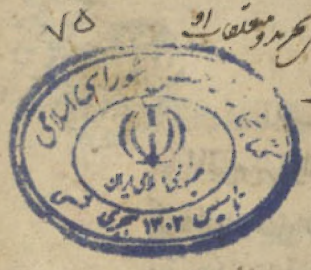 ۷۵
و متعلقات او
کتابخانه مجلس شورای اسلامی
جمهوری اسلامی ایران
تأسیس ۱۳۰۲ هجری شمسی